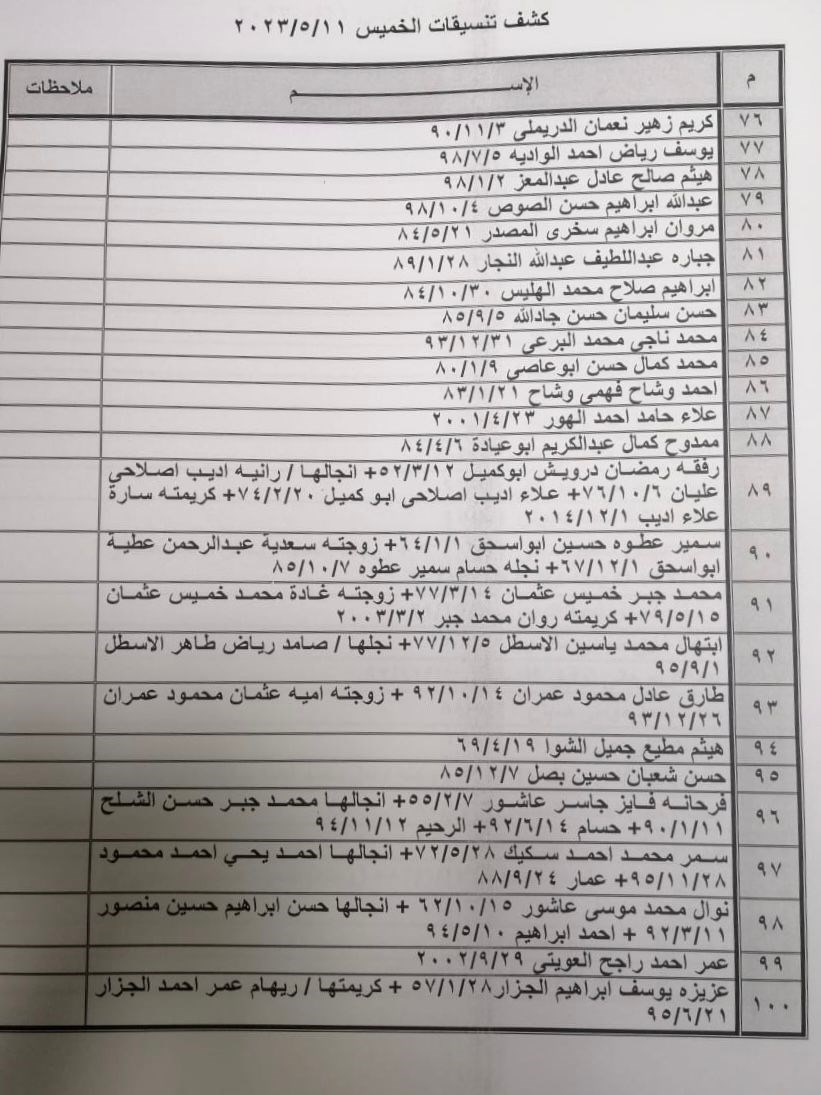 كشف تنسيقات الخميس ٢٠٢٣/٥/١١
م الإســـــــم ملاحظات
٧٦ كريم زهير نعمان الدريملى ٩٠/١١/٣
٧٧ يوسف رياض احمد الواديه ٩٨/٧/٥
٧٨ هيثم صالح عادل عبدالمعز ٩٨/١/٢
٧٩ عبدالله ابراهيم حسن الصوص ٩٨/١٠/٤
٨٠ مروان ابراهيم سخرى المصدر ٨٤/٥/٢١
٨١ جباره عبداللطيف عبدالله النجار ٨٩/١/٢٨
٨٢ ابراهيم صلاح محمد الهليس ٨٤/١٠/٣٠
٨٣ حسن سليمان حسن جادالله ٨٥/٩/٥
٨٤ محمد ناجى محمد البرعى ٩٣/١٢/٣١
٨٥ محمد كمال حسن ابوعاصى ٨٠/١/٩
٨٦ احمد وشاح فهمى وشاح ٨٣/١/٢١
٨٧ علاء حامد احمد الهور ٢٠٠١/٤/٢٣
٨٨ ممدوح كمال عبدالكريم ابوعيادة ٨٤/٤/٦
٨٩ رفقه رمضان درويش ابوكميل ٥٢/٣/١٢+ انجالها / رانيه اديب اصلاحي
عليان ٧٦/١٠/٦+ علاء اديب اصلاحى ابو كميل ٧٤/٢/٢٠+ كريمته سارة
علاء اديب ٢٠١٤/١٢/١
٩٠ سمير عطوه حسين ابواسحق ٦٤/١/١+ زوجته سعدية عبدالرحمن عطية
ابواسحق ٦٧/١٢/١+ نجله حسام سمير عطوه ٨٥/١٠/٧
٩١ محمد جبر خميس عثمان ٧٧/٣/١٤+ زوجته غادة محمد خميس عثمان
٧٩/٥/١٥+ كريمته روان محمد جبر ٢٠٠٣/٣/٢
٩٢ ابتهال محمد ياسين الاسطل ٧٧/١٢/٥+ نجلها / صامد رياض طاهر الاسطل
٩٥/٩/١
٩٣ طارق عادل محمود عمران ٩٢/١٠/١٤ + زوجته اميه عثمان محمود عمران
٩٣/١٢/٢٦
٩٤ هيثم مطيع جميل الشوا ٦٩/٤/١٩
٩٥ حسن شعبان حسين بصل ٨٥/١٢/٧
٩٦ فرحانه فايز جاسر عاشور ٥٥/٢/٧+ انجالها محمد جبر حسن الشلح
٩٠/١/١١+ حسام ٩٢/٦/١٤+ الرحيم ٩٤/١١/١٢
٩٧ سمر محمد احمد سكيك ٧٢/٥/٢٨+ انجالها احمد يحي احمد محمود
٩٥/١١/٢٨+ عمار ٨٨/٩/٢٤
٩٨ نوال محمد موسى عاشور ٦٢/١٠/١٥ + انجالها حسن ابراهيم حسين منصور
٩٢/٣/١١ + احمد ابراهيم ٩٤/٥/١٠
٩٩ عمر احمد راجح العويتى ٢٠٠٢/٩/٢٩
١٠٠ عزيزه يوسف ابراهيم الجزار٥٧/١/٢٨ + كريمتها / ريهام عمر احمد الجزار
٩٥/٦/٢١